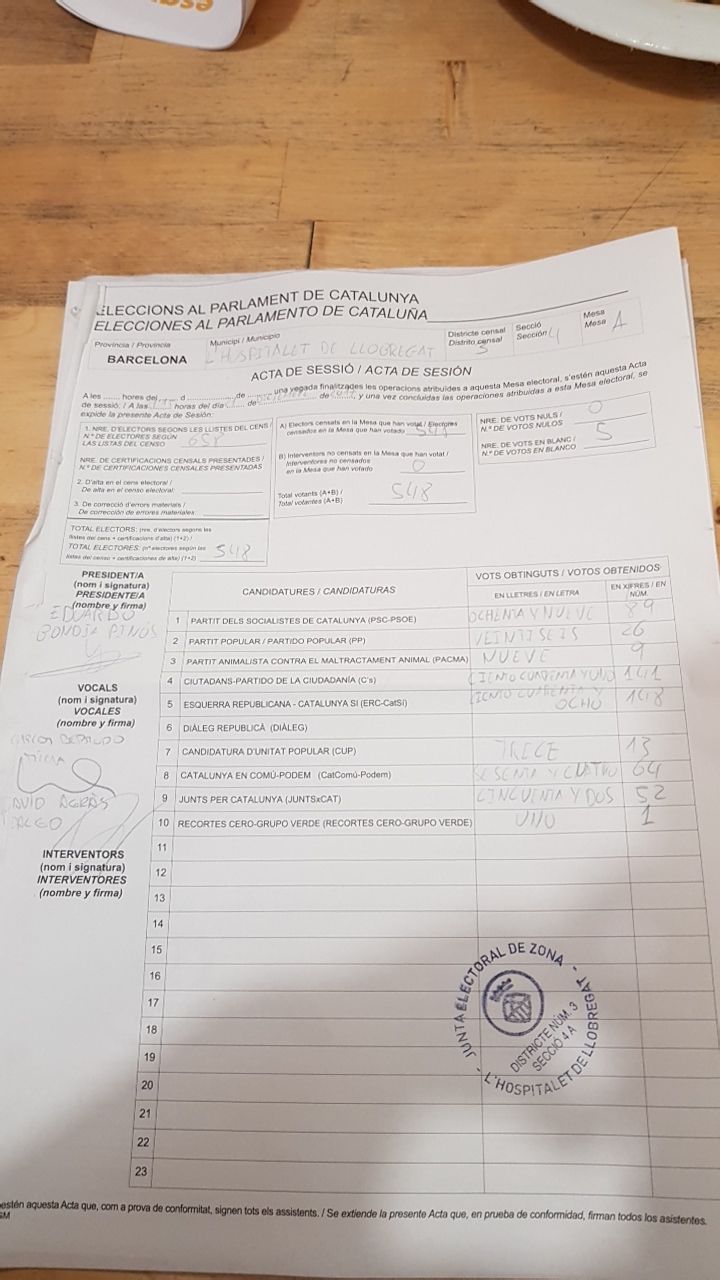 ELECCIONS AL PARLAMENT DE CATALUNYA
ELECCIONES AL PARLAMENTO DE CATALUÑA
Província / Provincia
BARCELONA
Municipi / Municipio
L'HOSPITALET DE LLOBREGAT
Districte censal
Distrito censal 3
Secció
Sección 4
Mesa
Mesa A
ACTA DE SESSIÓ / ACTA DE SESIÓN
A les ........ hores del ........ d ........ de ........ una vegada finalitzades les operacions atribuïdes a aquesta Mesa electoral, s'estén aquesta Acta
de sessió. / A las ........ horas del día ........ de ........ de ........, y una vez concluidas las operaciones atribuidas a esta Mesa electoral, se
expide la presente Acta de Sesión:
1. NRE. D'ELECTORS SEGONS LES LLISTES DEL CENS /
N.º DE ELECTORES SEGÚN
LAS LISTAS DEL CENSO 658
NRE. DE CERTIFICACIONS CENSALS PRESENTADES /
N.º DE CERTIFICACIONES CENSALES PRESENTADAS
2. D'alta en el cens electoral /
De alta en el censo electoral:
3. De correcció d'errors materials /
De corrección de errores materiales:
TOTAL ELECTORS: (nre. d'electors segons les
llistes del cens + certificacions d'alta) (1+2) /
TOTAL ELECTORES: (nº electores según las
listas del censo + certificaciones de alta) (1+2) 548
A) Electors censats en la Mesa que han votat / Electores
censados en la Mesa que han votado 548
B) Interventors no censats en la Mesa que han votat /
Interventores no censados
en la Mesa que han votado 0
Total votants (A+B) /
Total votantes (A+B) 548
NRE. DE VOTS NULS /
N.º DE VOTOS NULOS 0
NRE. DE VOTS EN BLANC /
N.º DE VOTOS EN BLANCO 5
PRESIDENT/A
(nom i signatura)
PRESIDENTE/A
(nombre y firma)
EDUARDO
VOCALS
(nom i signatura)
VOCALES
(nombre y firma)
DAVID AGRÀS
INTERVENTORS
(nom i signatura)
INTERVENTORES
(nombre y firma)
CANDIDATURES / CANDIDATURAS
VOTS OBTINGUTS / VOTOS OBTENIDOS
EN LLETRES / EN LETRA
EN XIFRES / EN NÚM.
1 PARTIT DELS SOCIALISTES DE CATALUNYA (PSC-PSOE) OCHENTA Y NUEVE 89
2 PARTIT POPULAR / PARTIDO POPULAR (PP) VEINTISEIS 26
3 PARTIT ANIMALISTA CONTRA EL MALTRACTAMENT ANIMAL (PACMA) NUEVE 9
4 CIUTADANS-PARTIDO DE LA CIUDADANÍA (C's) CIENTO CUARENTA Y UNO 141
5 ESQUERRA REPUBLICANA - CATALUNYA SÍ (ERC-CatSí) CIENTO CUARENTA Y OCHO 148
6 DIÀLEG REPUBLICÀ (DIÀLEG)
7 CANDIDATURA D'UNITAT POPULAR (CUP) TRECE 13
8 CATALUNYA EN COMÚ-PODEM (CatComú-Podem) SESENTA Y CUATRO 64
9 JUNTS PER CATALUNYA (JUNTSxCAT) CINCUENTA Y DOS 52
10 RECORTES CERO-GRUPO VERDE (RECORTES CERO-GRUPO VERDE) UNO 1
11
12
13
14
15
16
17
18
19
20
21
22
23
- JUNTA ELECTORAL DE ZONA -
DISTRICTE NÚM. 3
SECCIÓ 4 A
L'HOSPITALET DE LLOBREGAT
estén aquesta Acta que, com a prova de conformitat, signen tots els assistents. / Se extiende la presente Acta que, en prueba de conformidad, firman todos los asistentes.